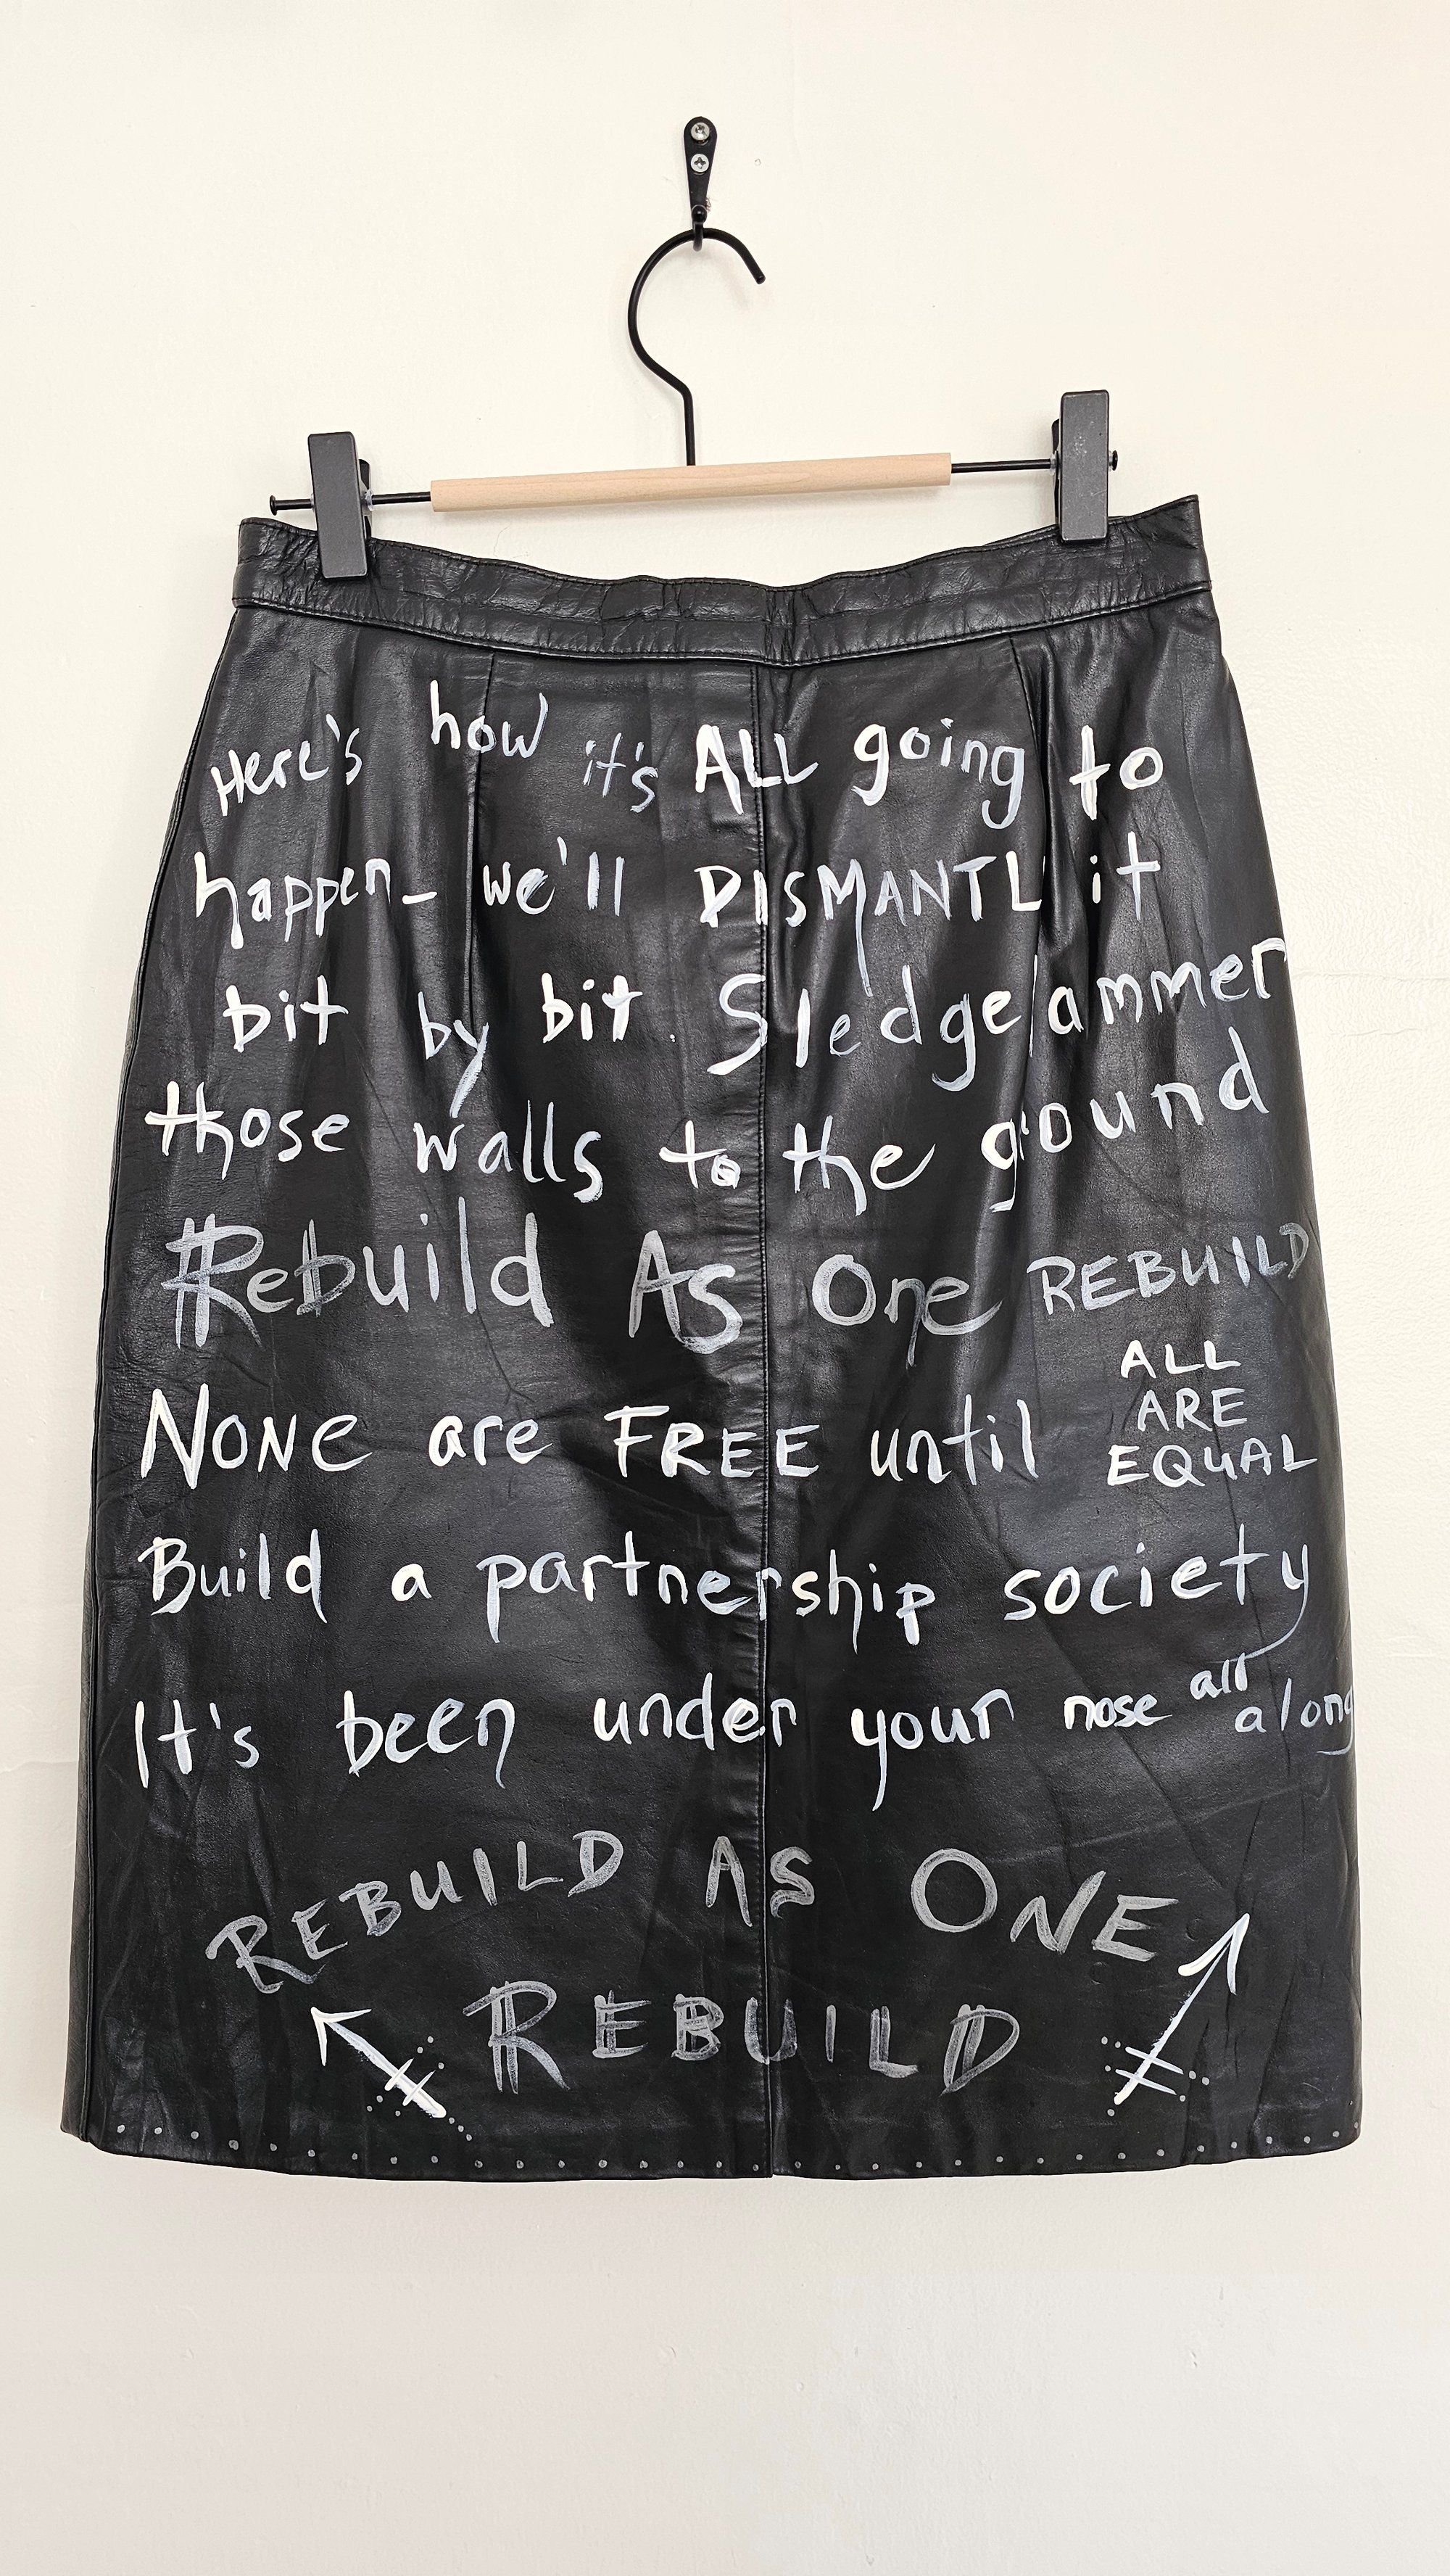 Here's how it's ALL going to
happen - we'll DISMANTL it
bit by bit. Sledgeammer
those walls to the ground
Rebuild As One REBUILD
NONE are FREE until ALL ARE EQUAL
Build a partnership society
It's been under your nose all along
REBUILD AS ONE
REBUILD